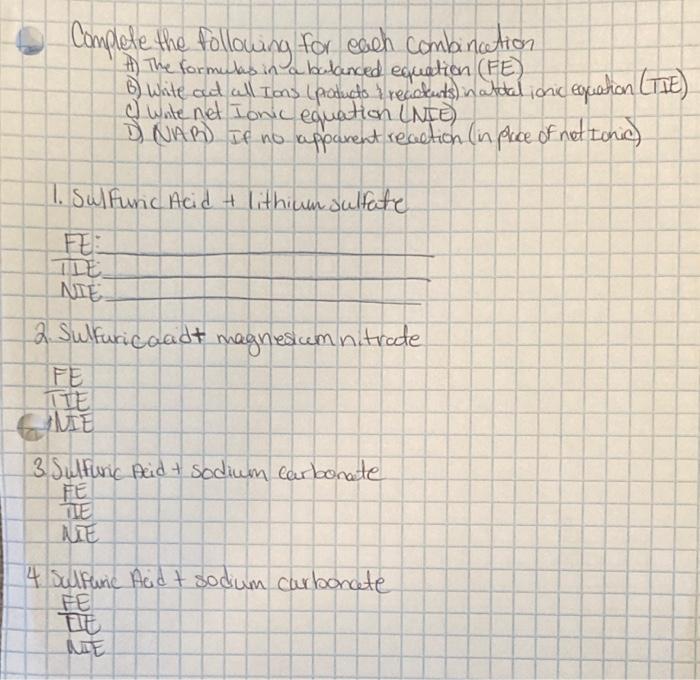 Complete the following for each combination
A) The formulas in a balanced equation (FE)
B) Write out all Ions (products & reactants) in a total ionic equation (TIE)
C) Write net Ionic equation (NIE)
D) (NAR) If no apparent reaction (in place of net ionic)
1. Sulfuric Acid + lithium sulfate
FE:
TIE
NIE
2. Sulfuric acid + magnesium nitrate
FE
TIE
NIE
3 Sulfuric Acid + sodium carbonate
FE
TIE
NIE
4 Sulfuric Acid + sodium carbonate
FE
TIE
NIE